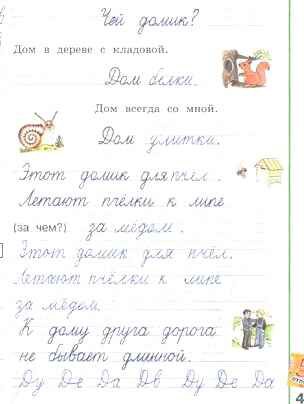 Чей домик?
Дом в дереве с кладовой.
Дом белки.
Дом всегда со мной.
Дом улитки.
Этот домик для пчёл.
Летают пчёлки к липе
(за чем?) за мёдом.
Этот домик для пчёл.
Летают пчёлки к липе
за мёдом.
К дому друга дорога
не бывает длинной.
Ду Де Да Дв Ду Де Да
4